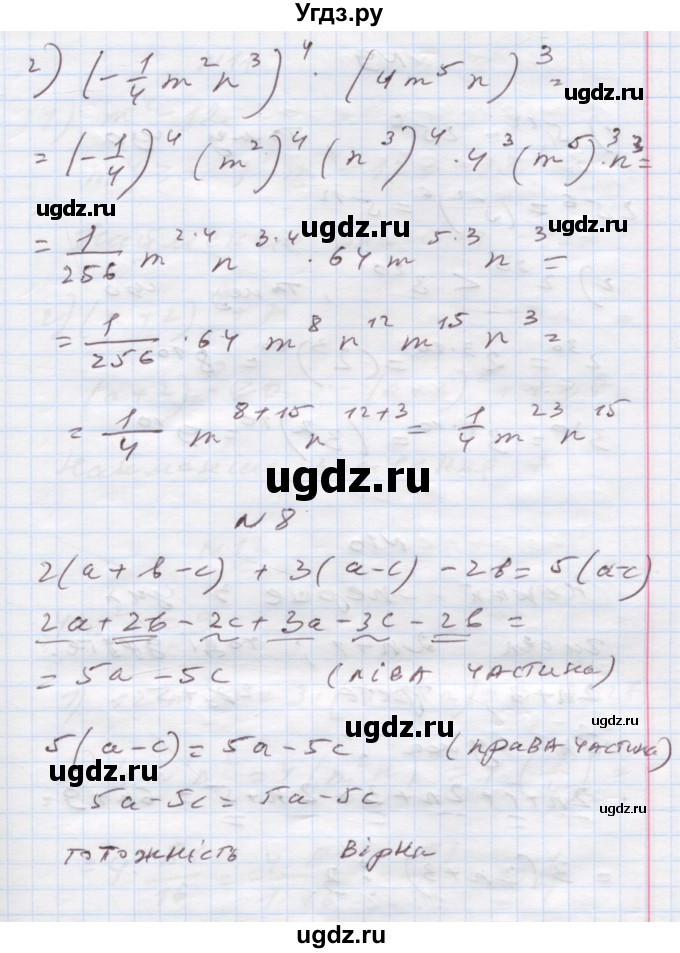 Угдз.ру
2) (-1/4 m²n³)⁴ · (4m⁵n)³ =
= (-1/4)⁴ (m²)⁴ (n³)⁴ · 4³ (m⁵)³ · n³ =
ugdz.ru
ugdz.ru
ugdz.ru
= 1/256 m^{2·4} n^{3·4} · 64 m^{5·3} n³ =
= 1/256 · 64 m⁸ n¹² m¹⁵ n³ =
= 1/4 m^{8+15} n^{12+3} = 1/4 m²³ n¹⁵
ugdz.ru
N 8
2(a + b - c) + 3(a - c) - 2b = 5(a - c)
ugdz.ru
ugdz.ru
2a + 2b - 2c + 3a - 3c - 2b =
= 5a - 5c (ліва частина)
ugdz.ru
ugdz.ru
5(a - c) = 5a - 5c (права частина)
ugdz.ru
5a - 5c = 5a - 5c
ugdz.ru
тотожність вірна
ugdz.ru